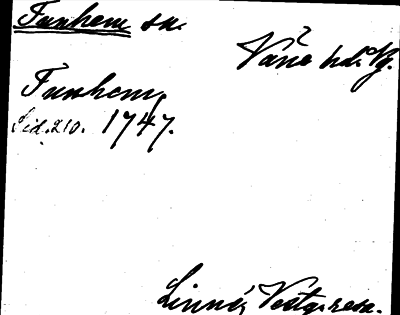 Funhem sn.
Väne hd. Vg.
Funhem,
Sid. 210. 1747.
Linnés Västg. resa.